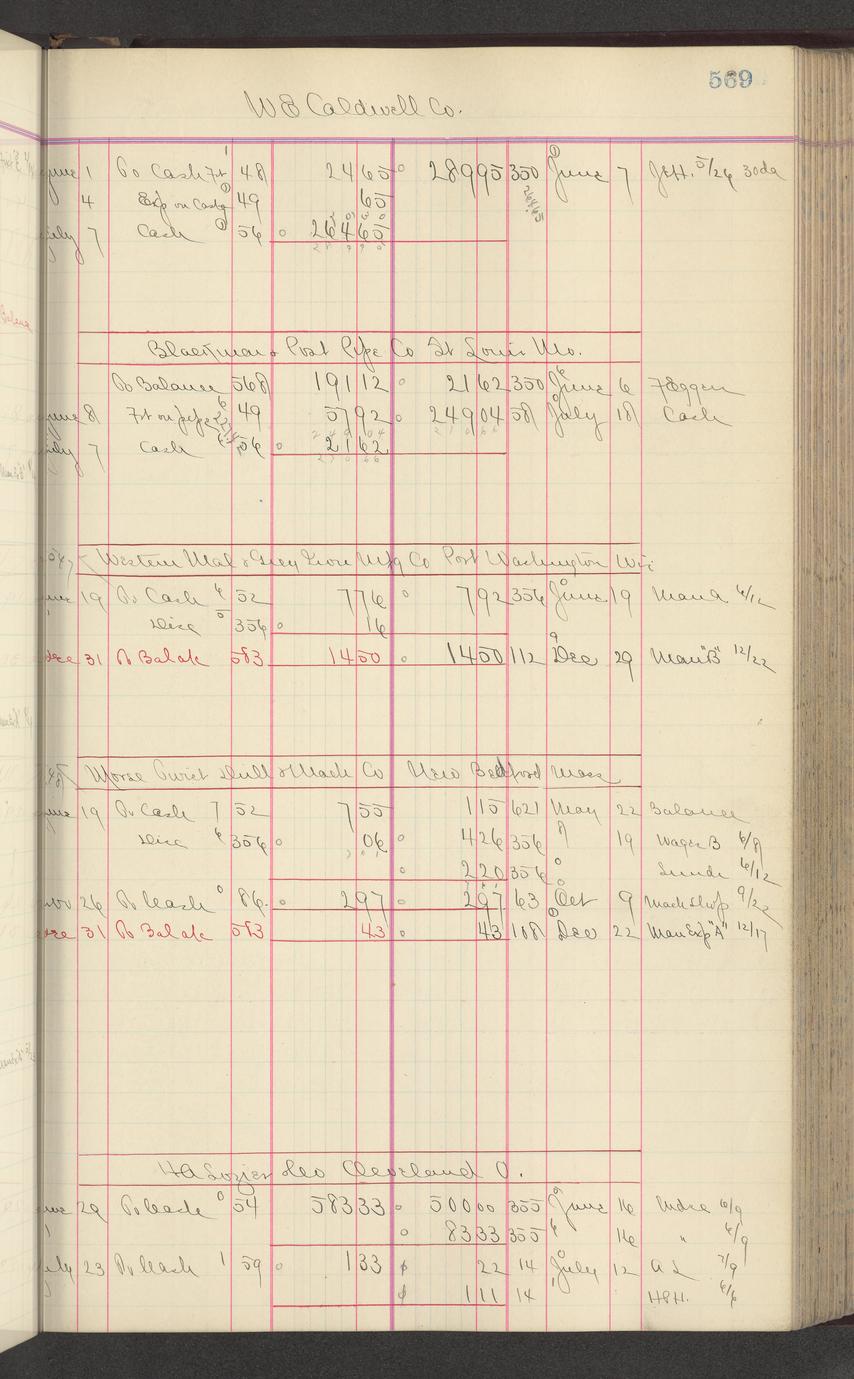 569
W E Caldwell Co.
June 1 To Cash Frt 48 24 65 289 95 350 June 7 J&H. 5/26 30da
4 Exp on Castg 49 65 264 65
July 7 Cash 56 264 65
Blackmer & Post Pipe Co St Louis Mo.
To Balance 568 191 12 21 62 350 June 6
June 8 Frt on pipe 49 57 92 249 04 58 July 18 Cash
July 7 Cash 56 21 62
Western Mal & Grey Iron Mfg Co Port Washington Wis
June 19 To Cash 52 7 76 7 92 356 June 19 Man A 6/12
Disc 356 16
Dec 31 To Balak 583 14 50 14 50 112 Dec 29 Man "B" 12/22
Morse Twist Drill & Mach Co New Bedford Mass
June 19 To Cash 7 52 7 55 1 15 621 May 22 Balance
Disc 6 356 06 4 26 356 19 Wagen B 6/8
2 20 356 6/12
Nov 26 To Cash 86 2 97 2 97 63 Oct 9 Mach Shop 9/22
Dec 31 To Balak 583 43 43 108 Dec 22 Man Exp "A" 12/17
H A Lozier &Co Cleveland O.
June 29 To Cash 54 583 33 500 00 355 June 16 Indse 6/9
83 33 355 16 " 6/9
July 23 To Cash 1 59 1 33 22 14 July 12 A L 7/9
1 11 14 H&H. 6/6